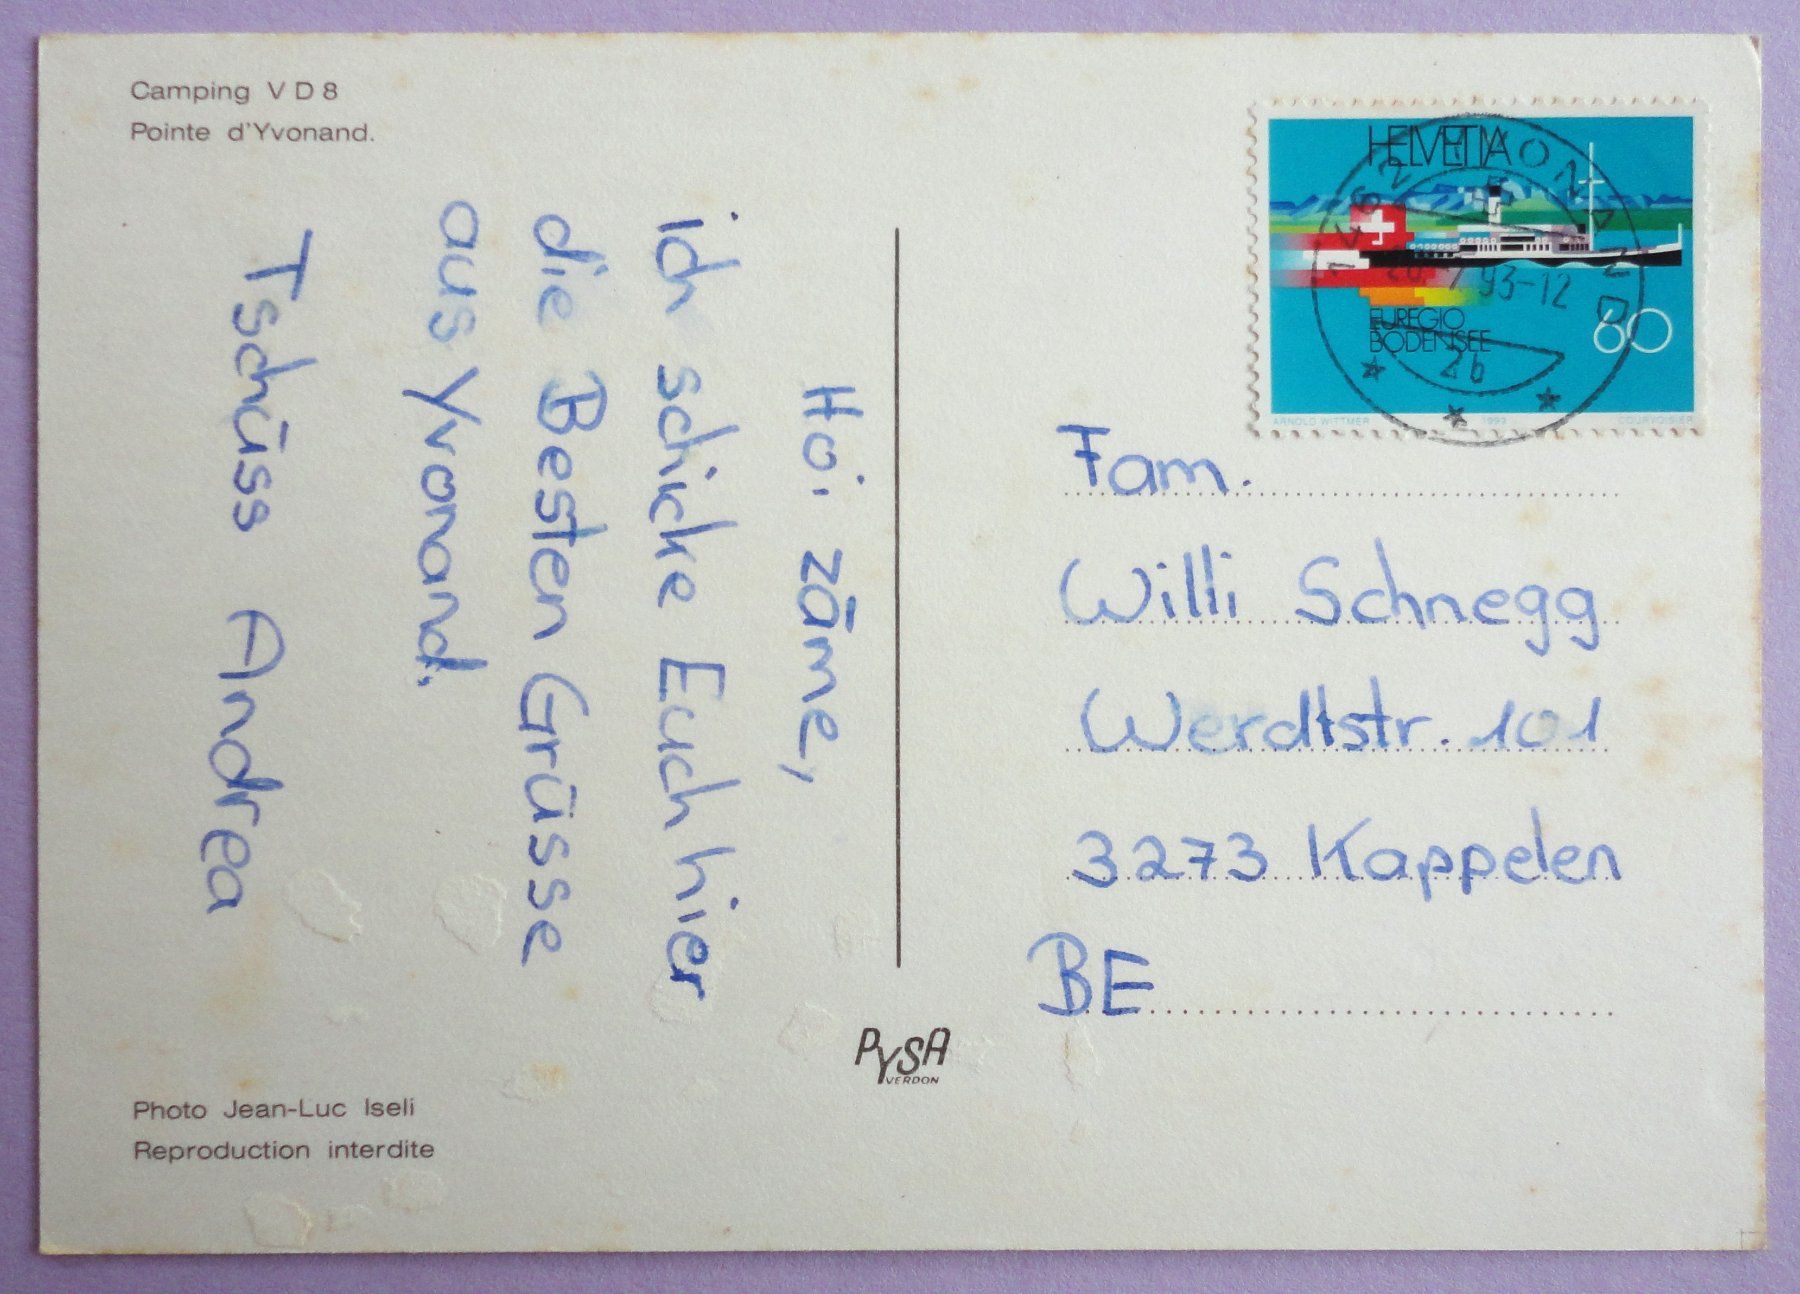 Camping V D 8
Pointe d'Yvonand.
Hoi zäme,
ich schicke Euch hier
die Besten Grüsse
aus Yvonand.
Tschüss Andrea
Photo Jean-Luc Iseli
Reproduction interdite
PYSA
VERDON
HELVETIA
EUREGIO
BODENSEE
60
ARNOLD WITTMER 1993 COURVOISIER
1462 YVONAND
7 93-12
2b
Fam.
Willi Schnegg
Werdtstr. 101
3273 Kappelen
BE